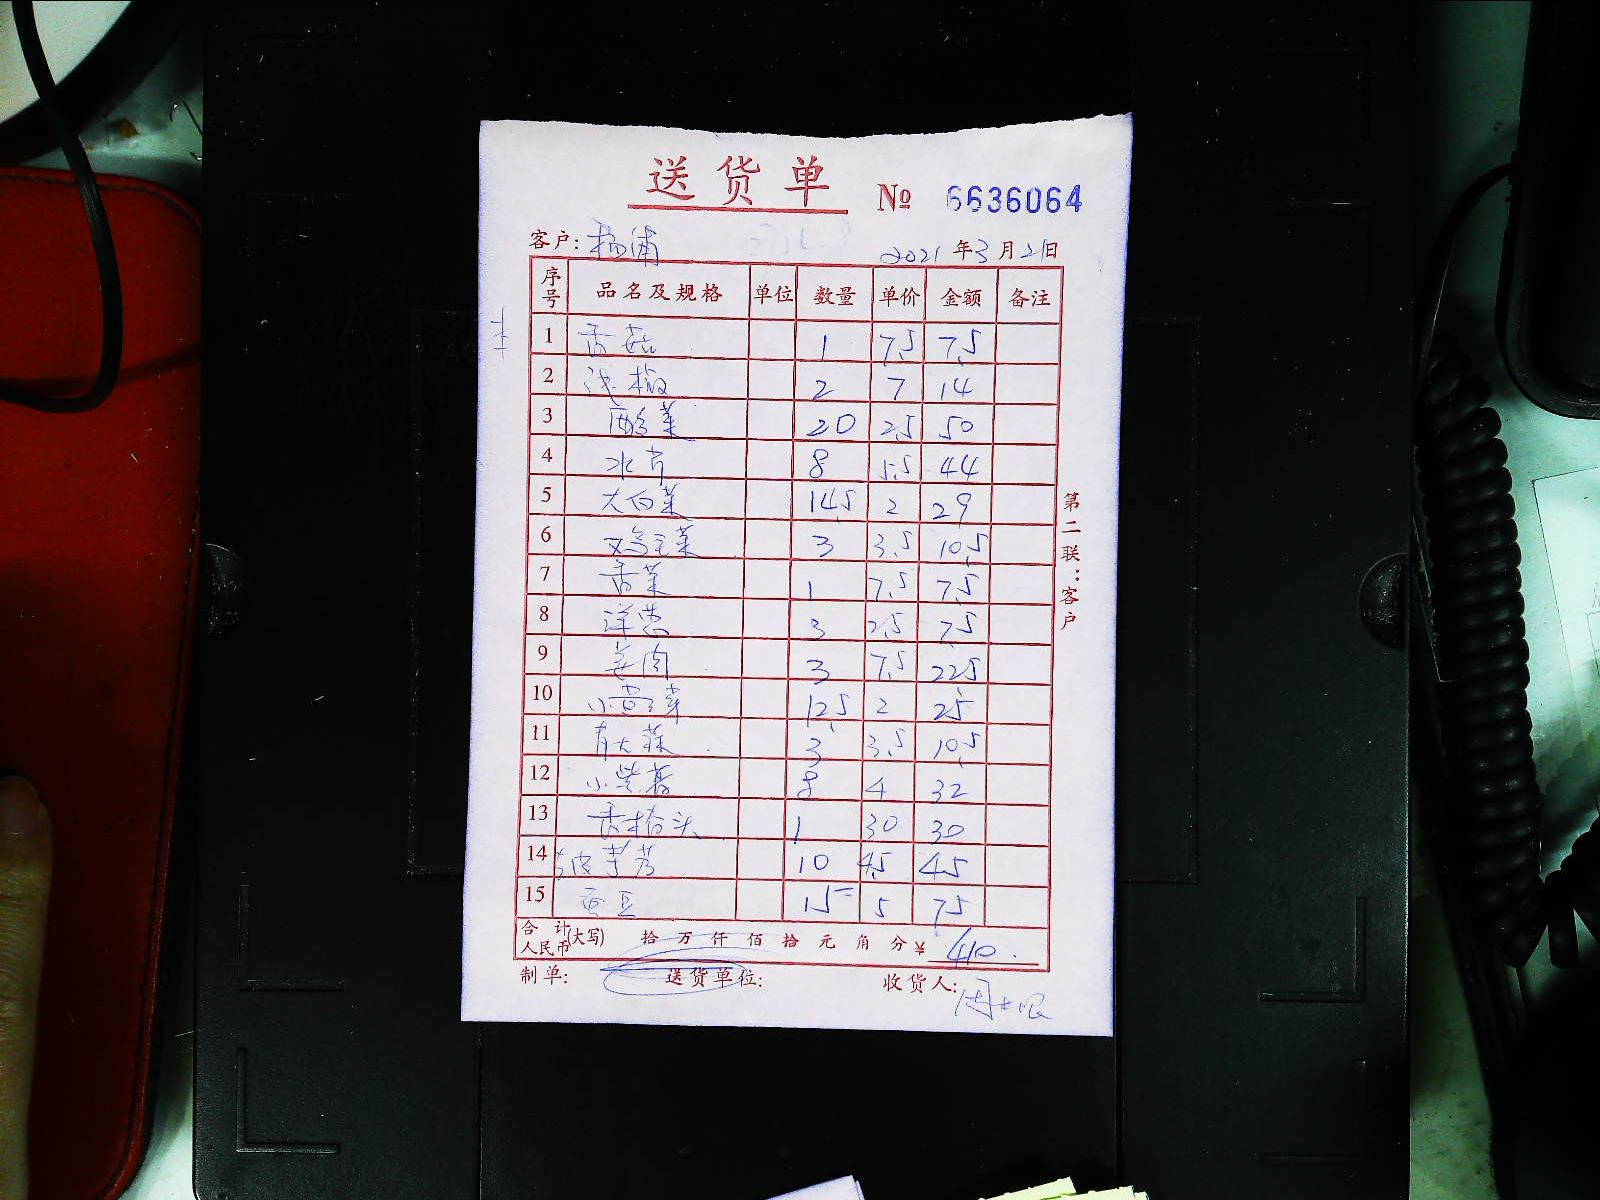 送货单 № 6636064
客户: 杨浦 2021年3月21日
序号 品名及规格 单位 数量 单价 金额 备注
1 香菇 1 7.5 7.5
2 浅椒 2 7 14
3 酸菜 20 2.5 50
4 水芹 8 5.5 44
5 大白菜 14.5 2 29
6 3 3.5 10.5
7 香菜 1 7.5 7.5
8 洋葱 3 2.5 7.5
9 姜肉 3 7.5 22.5
10 小黄芽 12.5 2 25
11 青大蒜 3 3.5 10.5
12 小紫薯 8 4 32
13 香椿头 1 30 30
14 皮芋艿 10 4.5 45
15 蚕豆 15 5 75
合计人民币(大写) 拾万仟佰拾元角分 ¥ 410.
制单: 送货单位: 收货人: 周
第二联：客户